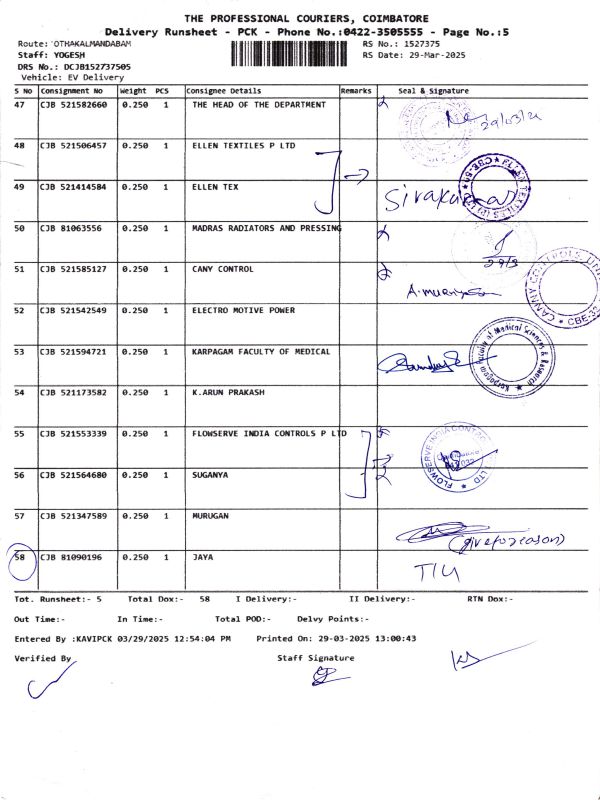 THE PROFESSIONAL COURIERS, COIMBATORE
Delivery Runsheet - PCK - Phone No.:0422-3505555 - Page No.:5
Route: OTHAKALMANDABAM RS No.: 1527375
Staff: YOGESH RS Date: 29-Mar-2025
DRS No.: DCJB152737505
Vehicle: EV Delivery
S No Consignment No Weight PCS Consignee Details Remarks Seal & Signature
47 CJB 521582660 0.250 1 THE HEAD OF THE DEPARTMENT
48 CJB 521506457 0.250 1 ELLEN TEXTILES P LTD
49 CJB 521414584 0.250 1 ELLEN TEX
50 CJB 81063556 0.250 1 MADRAS RADIATORS AND PRESSING
29/3
51 CJB 521585127 0.250 1 CANY CONTROL
52 CJB 521542549 0.250 1 ELECTRO MOTIVE POWER
53 CJB 521594721 0.250 1 KARPAGAM FACULTY OF MEDICAL
Karpagam Faculty of Medical Sciences & Research
54 CJB 521173582 0.250 1 K.ARUN PRAKASH
55 CJB 521553339 0.250 1 FLOWSERVE INDIA CONTROLS P LTD
56 CJB 521564680 0.250 1 SUGANYA
57 CJB 521347589 0.250 1 MURUGAN
58 CJB 81090196 0.250 1 JAYA
Tot. Runsheet:- 5 Total Dox:- 58 I Delivery:- II Delivery:- RTN Dox:-
Out Time:- In Time:- Total POD:- Delvy Points:-
Entered By :KAVIPCK 03/29/2025 12:54:04 PM Printed On: 29-03-2025 13:00:43
Verified By Staff Signature